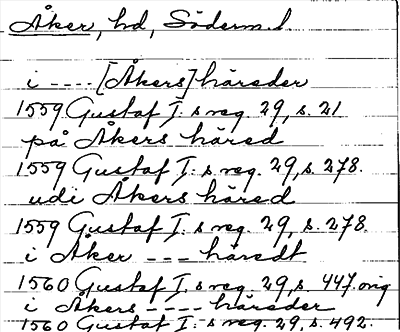 Åker, hd, Söderm.l
i ---- [Åkers] häreder
1559 Gustaf I:s reg. 29, s. 21
på Åkers häred
1559 Gustaf I:s reg. 29, s. 278.
udi Åkers häred
1559 Gustaf I:s reg. 29, s. 278.
i Åker --- häredt
1560 Gustaf I:s reg. 29, s. 447. orig
i Åkers ---- häreder
1560 Gustaf I:s reg. 29, s. 492.